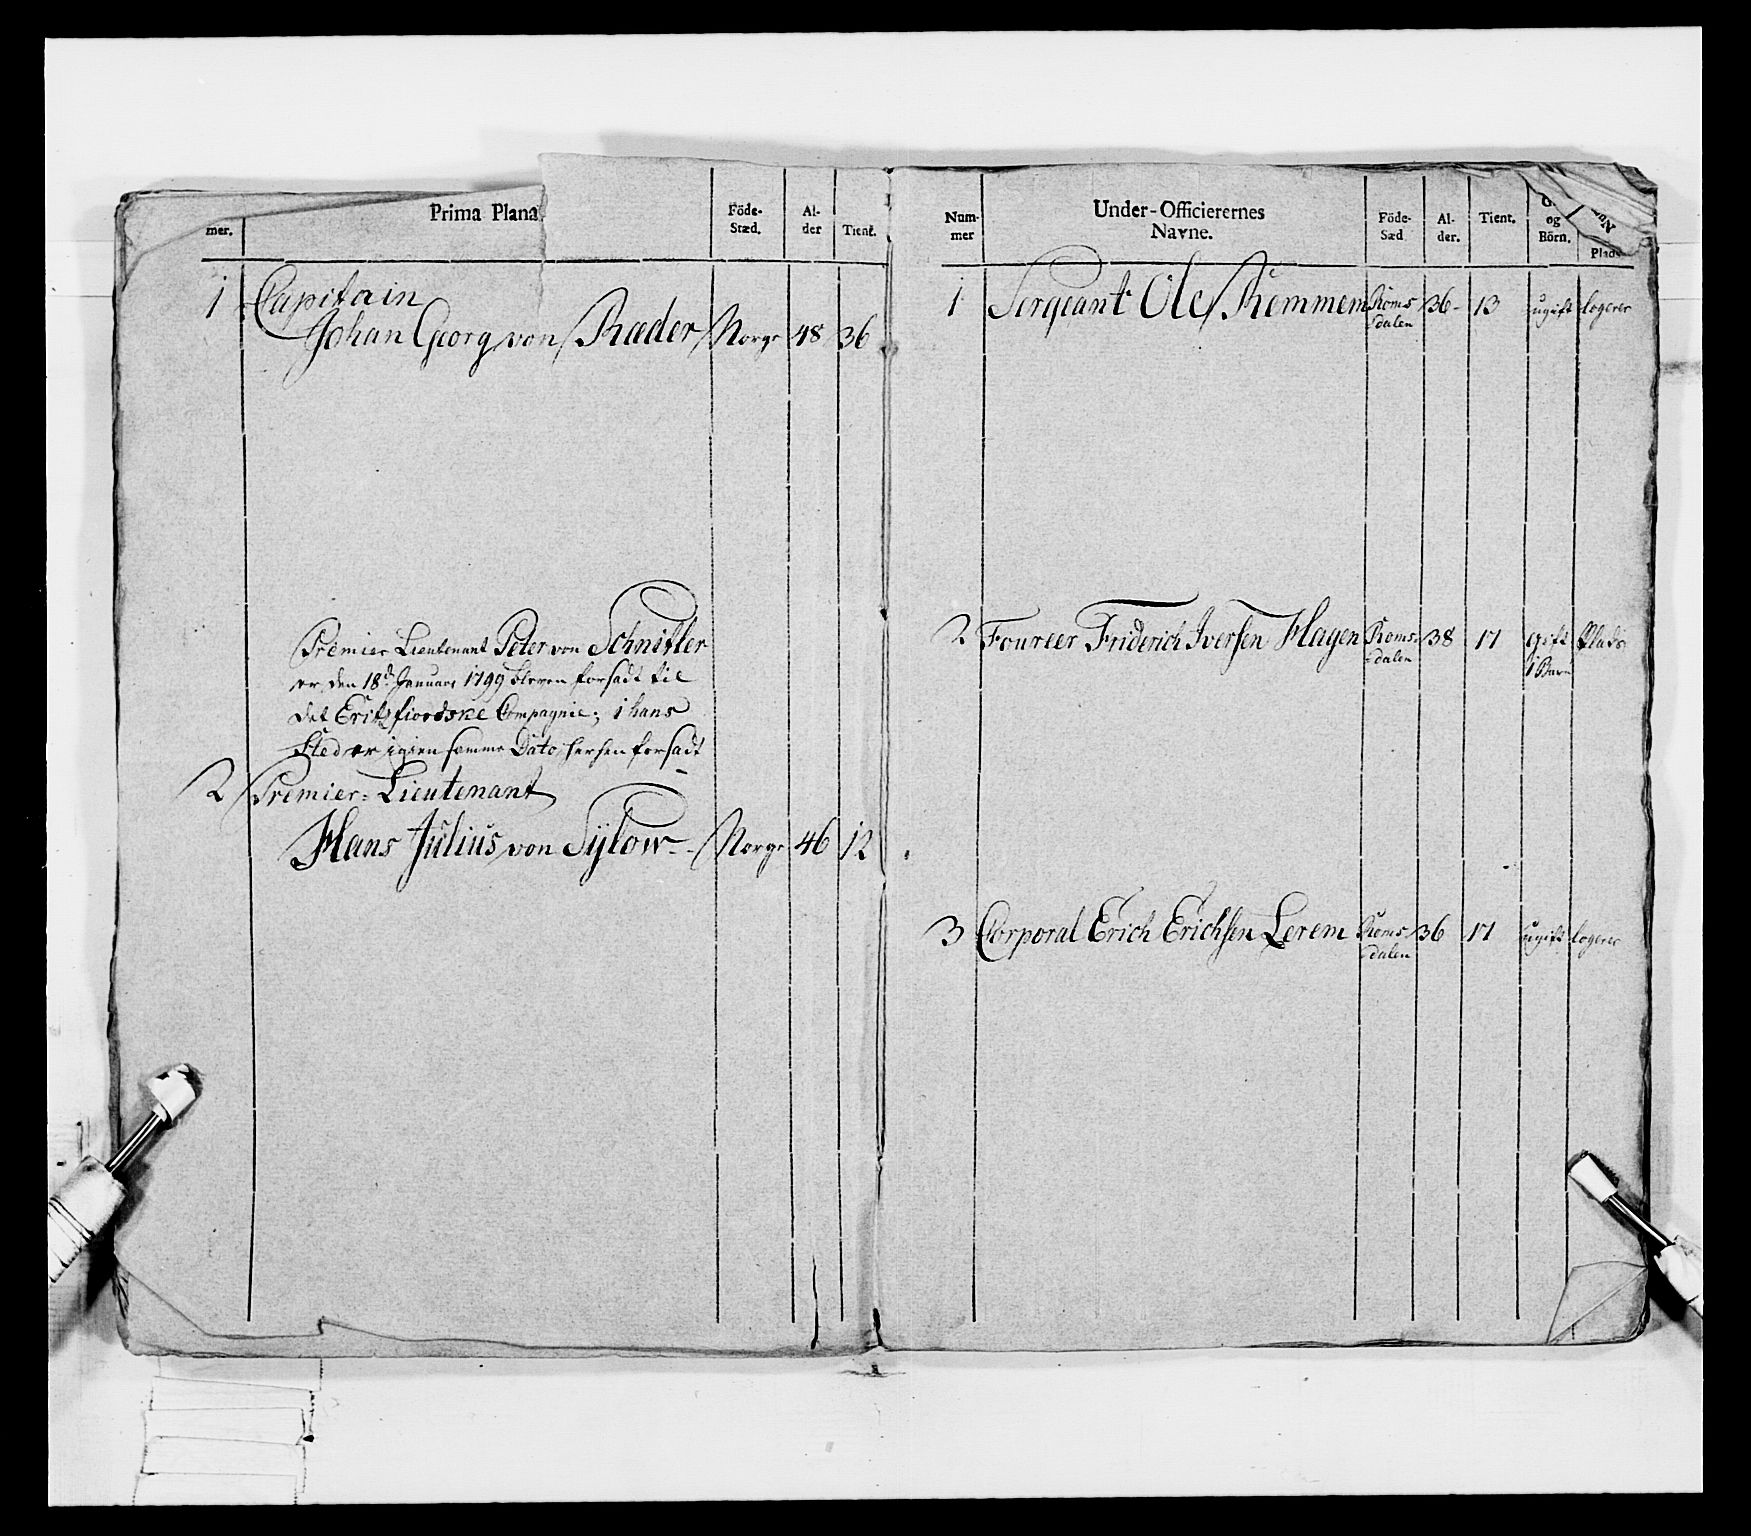 mer.
Prima Plana.
Föde-
Stæd.
Al-
der
Tient.
1 Capitain
Johan Georg von Ræder Norge 48 36
Premier Lieutenant Peter von Schnitler
er den 18d Januari 1799 bleven forsadt til
det Eritzfiordske Compagnie; i hans
Sted er igien samme Dato hersen forsadt
2 Premier-Lieutenant
Hans Julius von Sylow Norge 46 12
Num-
mer
Under-Officierernes
Navne.
Föde-
Sæd
Al-
der.
Tient.
og
Börn.
Plads
1 Sergeant Ole Remmem Roms 36 13 ugift logerer
dalen
2 Foureer Friderich Iversen Hagen Roms 38 17 gift Plads
dalen 1 Barn
3 Corporal Erich Erichsen Lerem Roms 36 17 ugift logerer
dalen